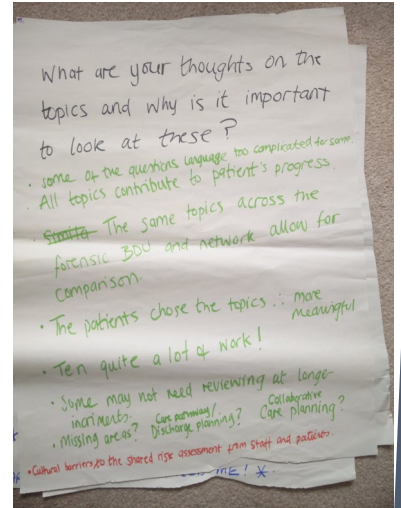 What are your thoughts on the
topics and why is it important
to look at these?
• some of the questions language too complicated for some.
• All topics contribute to patient's progress.
• The same topics across the
forensic BDU and network allow for
comparison.
• The patients chose the topics ∴ more
meaningful
• Ten quite a lot of work!
• Some may not need reviewing at longer
incriments.
• Missing areas? Care pathway/ Discharge planning? Collaborative Care planning?
• Cultural barriers to the shared risk assessment from staff and patients.
ME! *